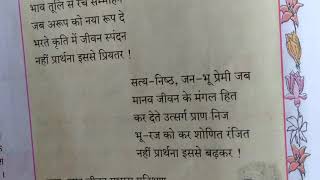 भाव तूलि से रच सम्मोहन
जब अरूप को नया रूप दे
भरते कृति में जीवन स्पंदन
नहीं प्रार्थना इससे प्रियतर !
सत्य-निष्ठ, जन-भू प्रेमी जब
मानव जीवन के मंगल हित
कर देते उत्सर्ग प्राण निज
भू-रज को कर शोणित रंजित
नहीं प्रार्थना इससे बढ़कर !